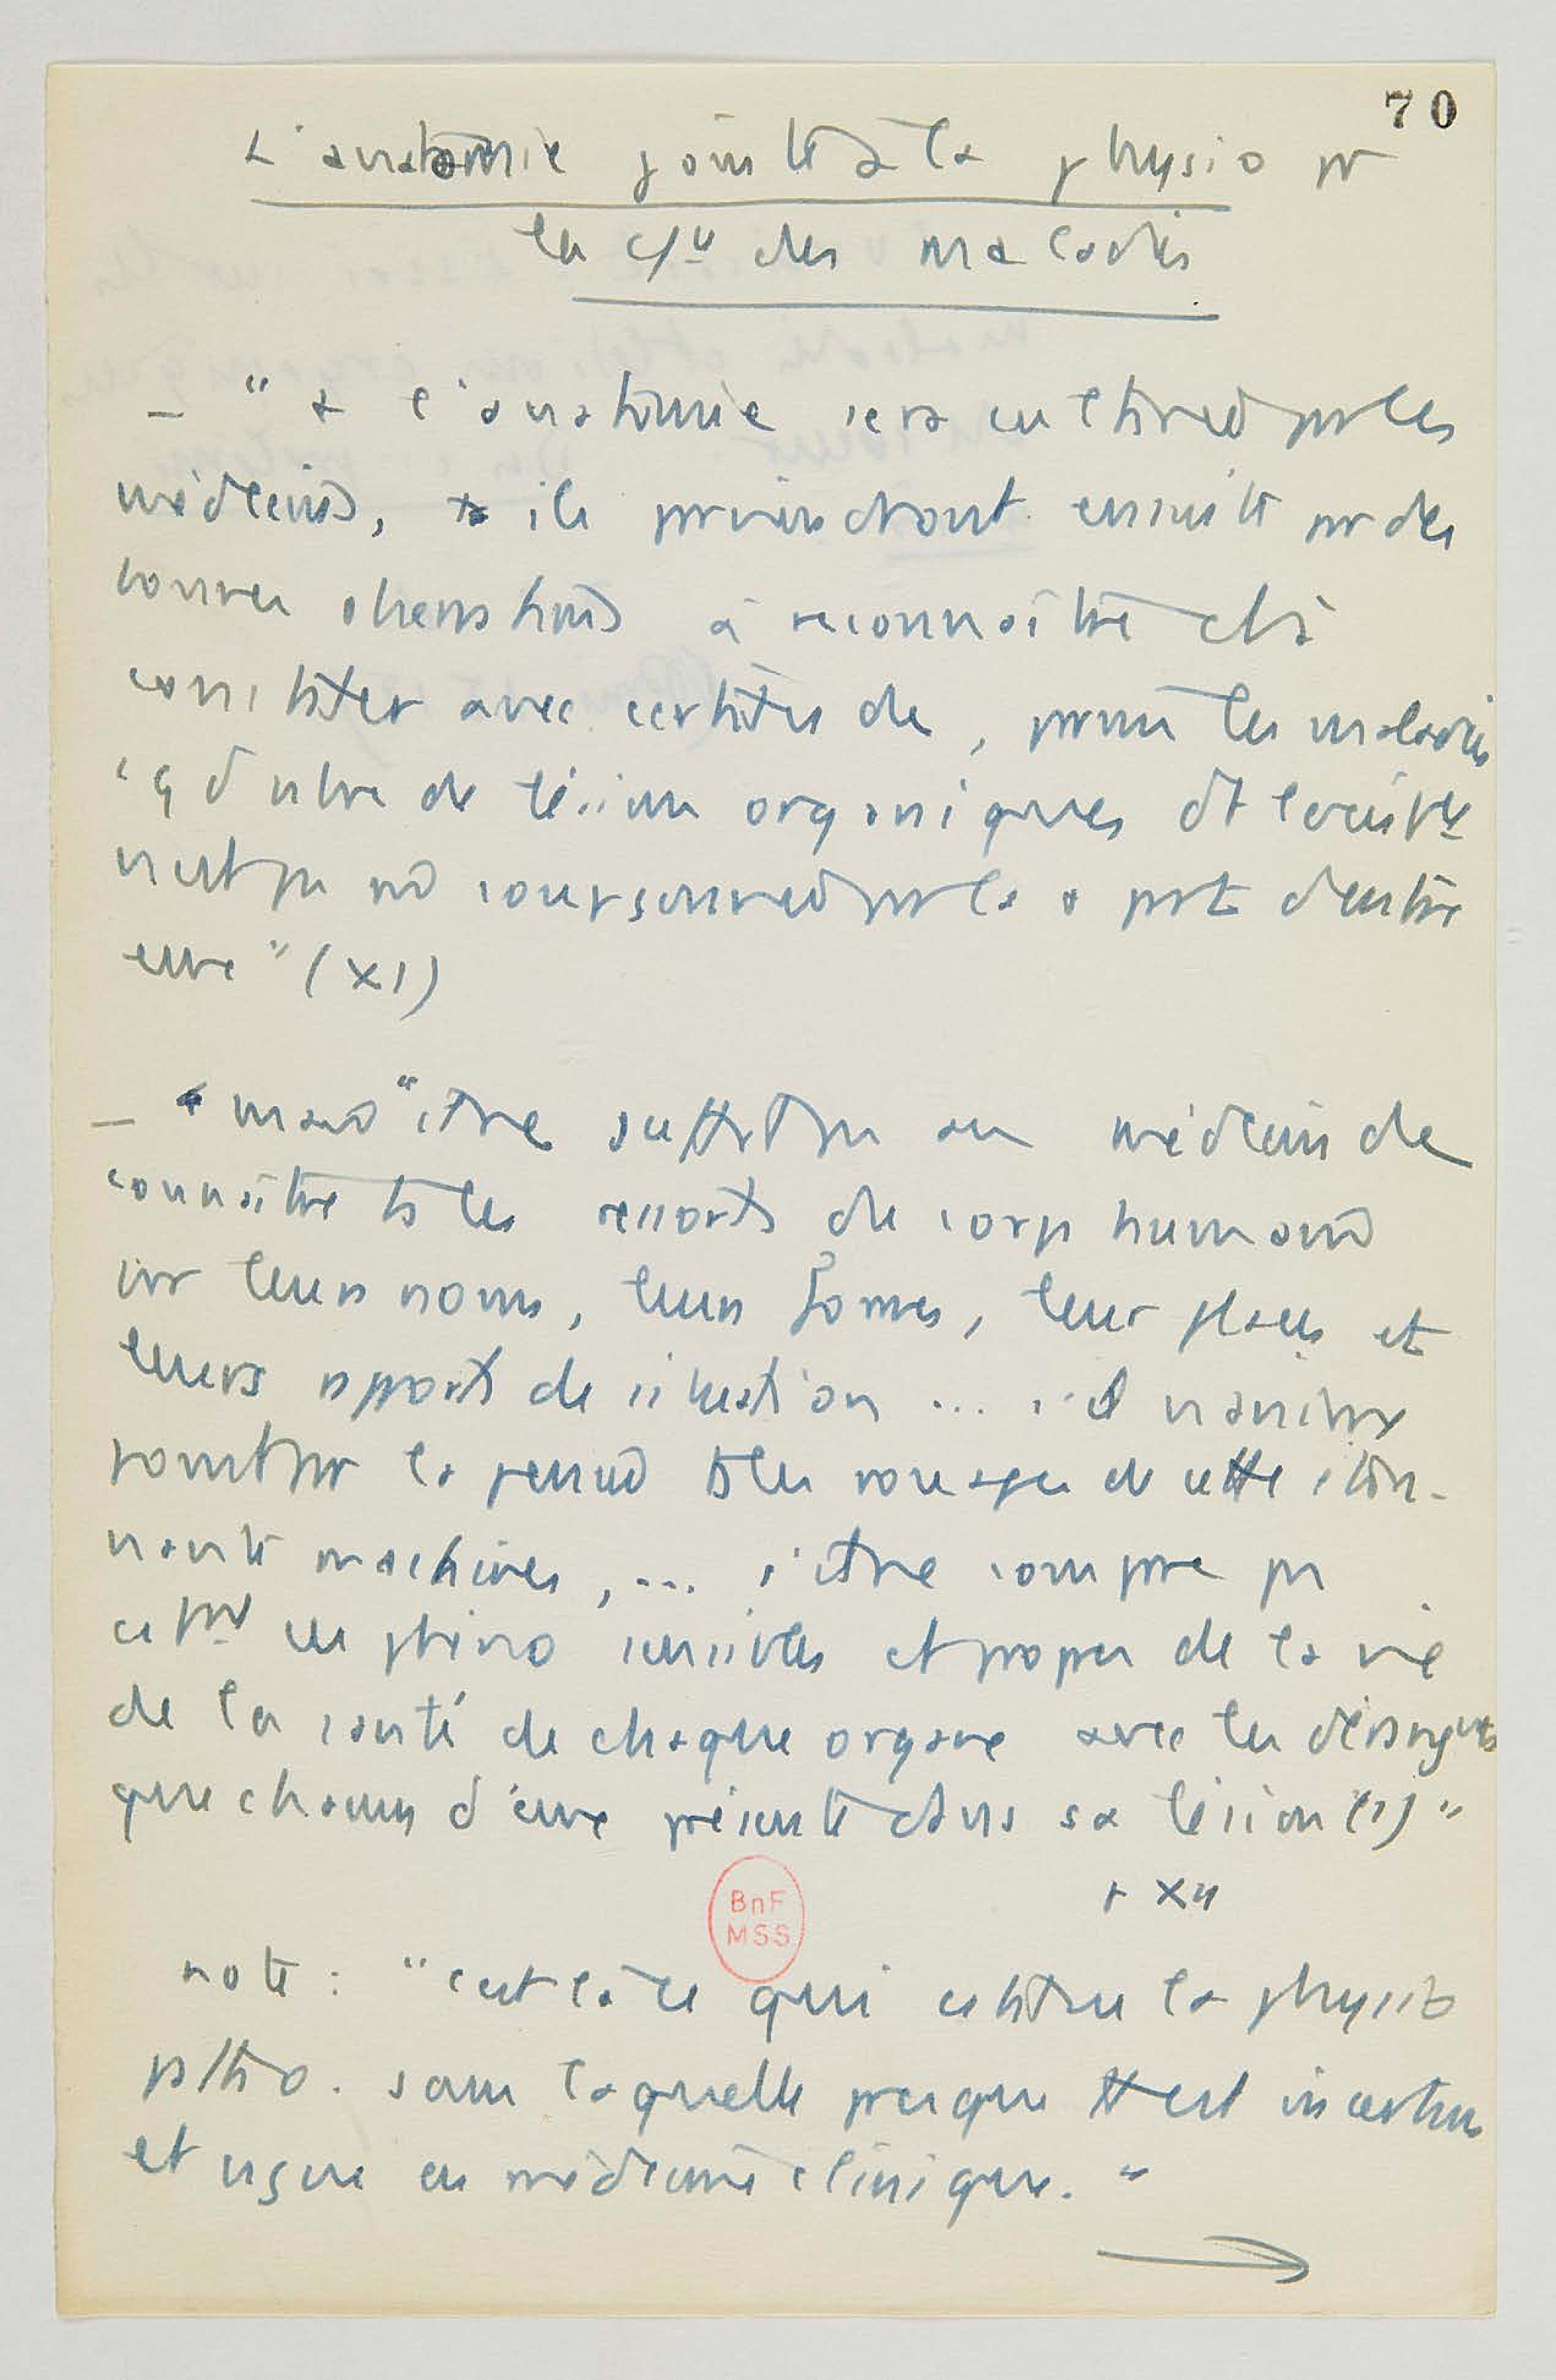 70
L'anatomie jointe à la physio pr
la c/ce des maladies
_ " + l'anatomie sera cultivée par les
médecins, + ils parviendront ensuite par des
bonnes observations à reconnaître et à
constater avec certitude, parmi les maladies
de lésions organiques dt l'existce
n'est pas soupçonnée par la + part d'entre
eux" (XI)
_ mais "être suffit pas au médecin de
connaître ts les ressorts du corps humain
par leurs noms, leurs formes, leur place et
leurs rapports de situation ...
par la pensée ts les rouages de cette éton-
nante machine, ...
ces phéno sensibles et propres de la vie
de la santé de chaque organe avec les dérangmts
que chacun d'eux présente dans sa lésion (1)"
+ XII
note : "c'est là ce qui constitue la physio
patho. sans laquelle presque tt est incertain
et vague en médecine clinique."
→
BnF
MSS